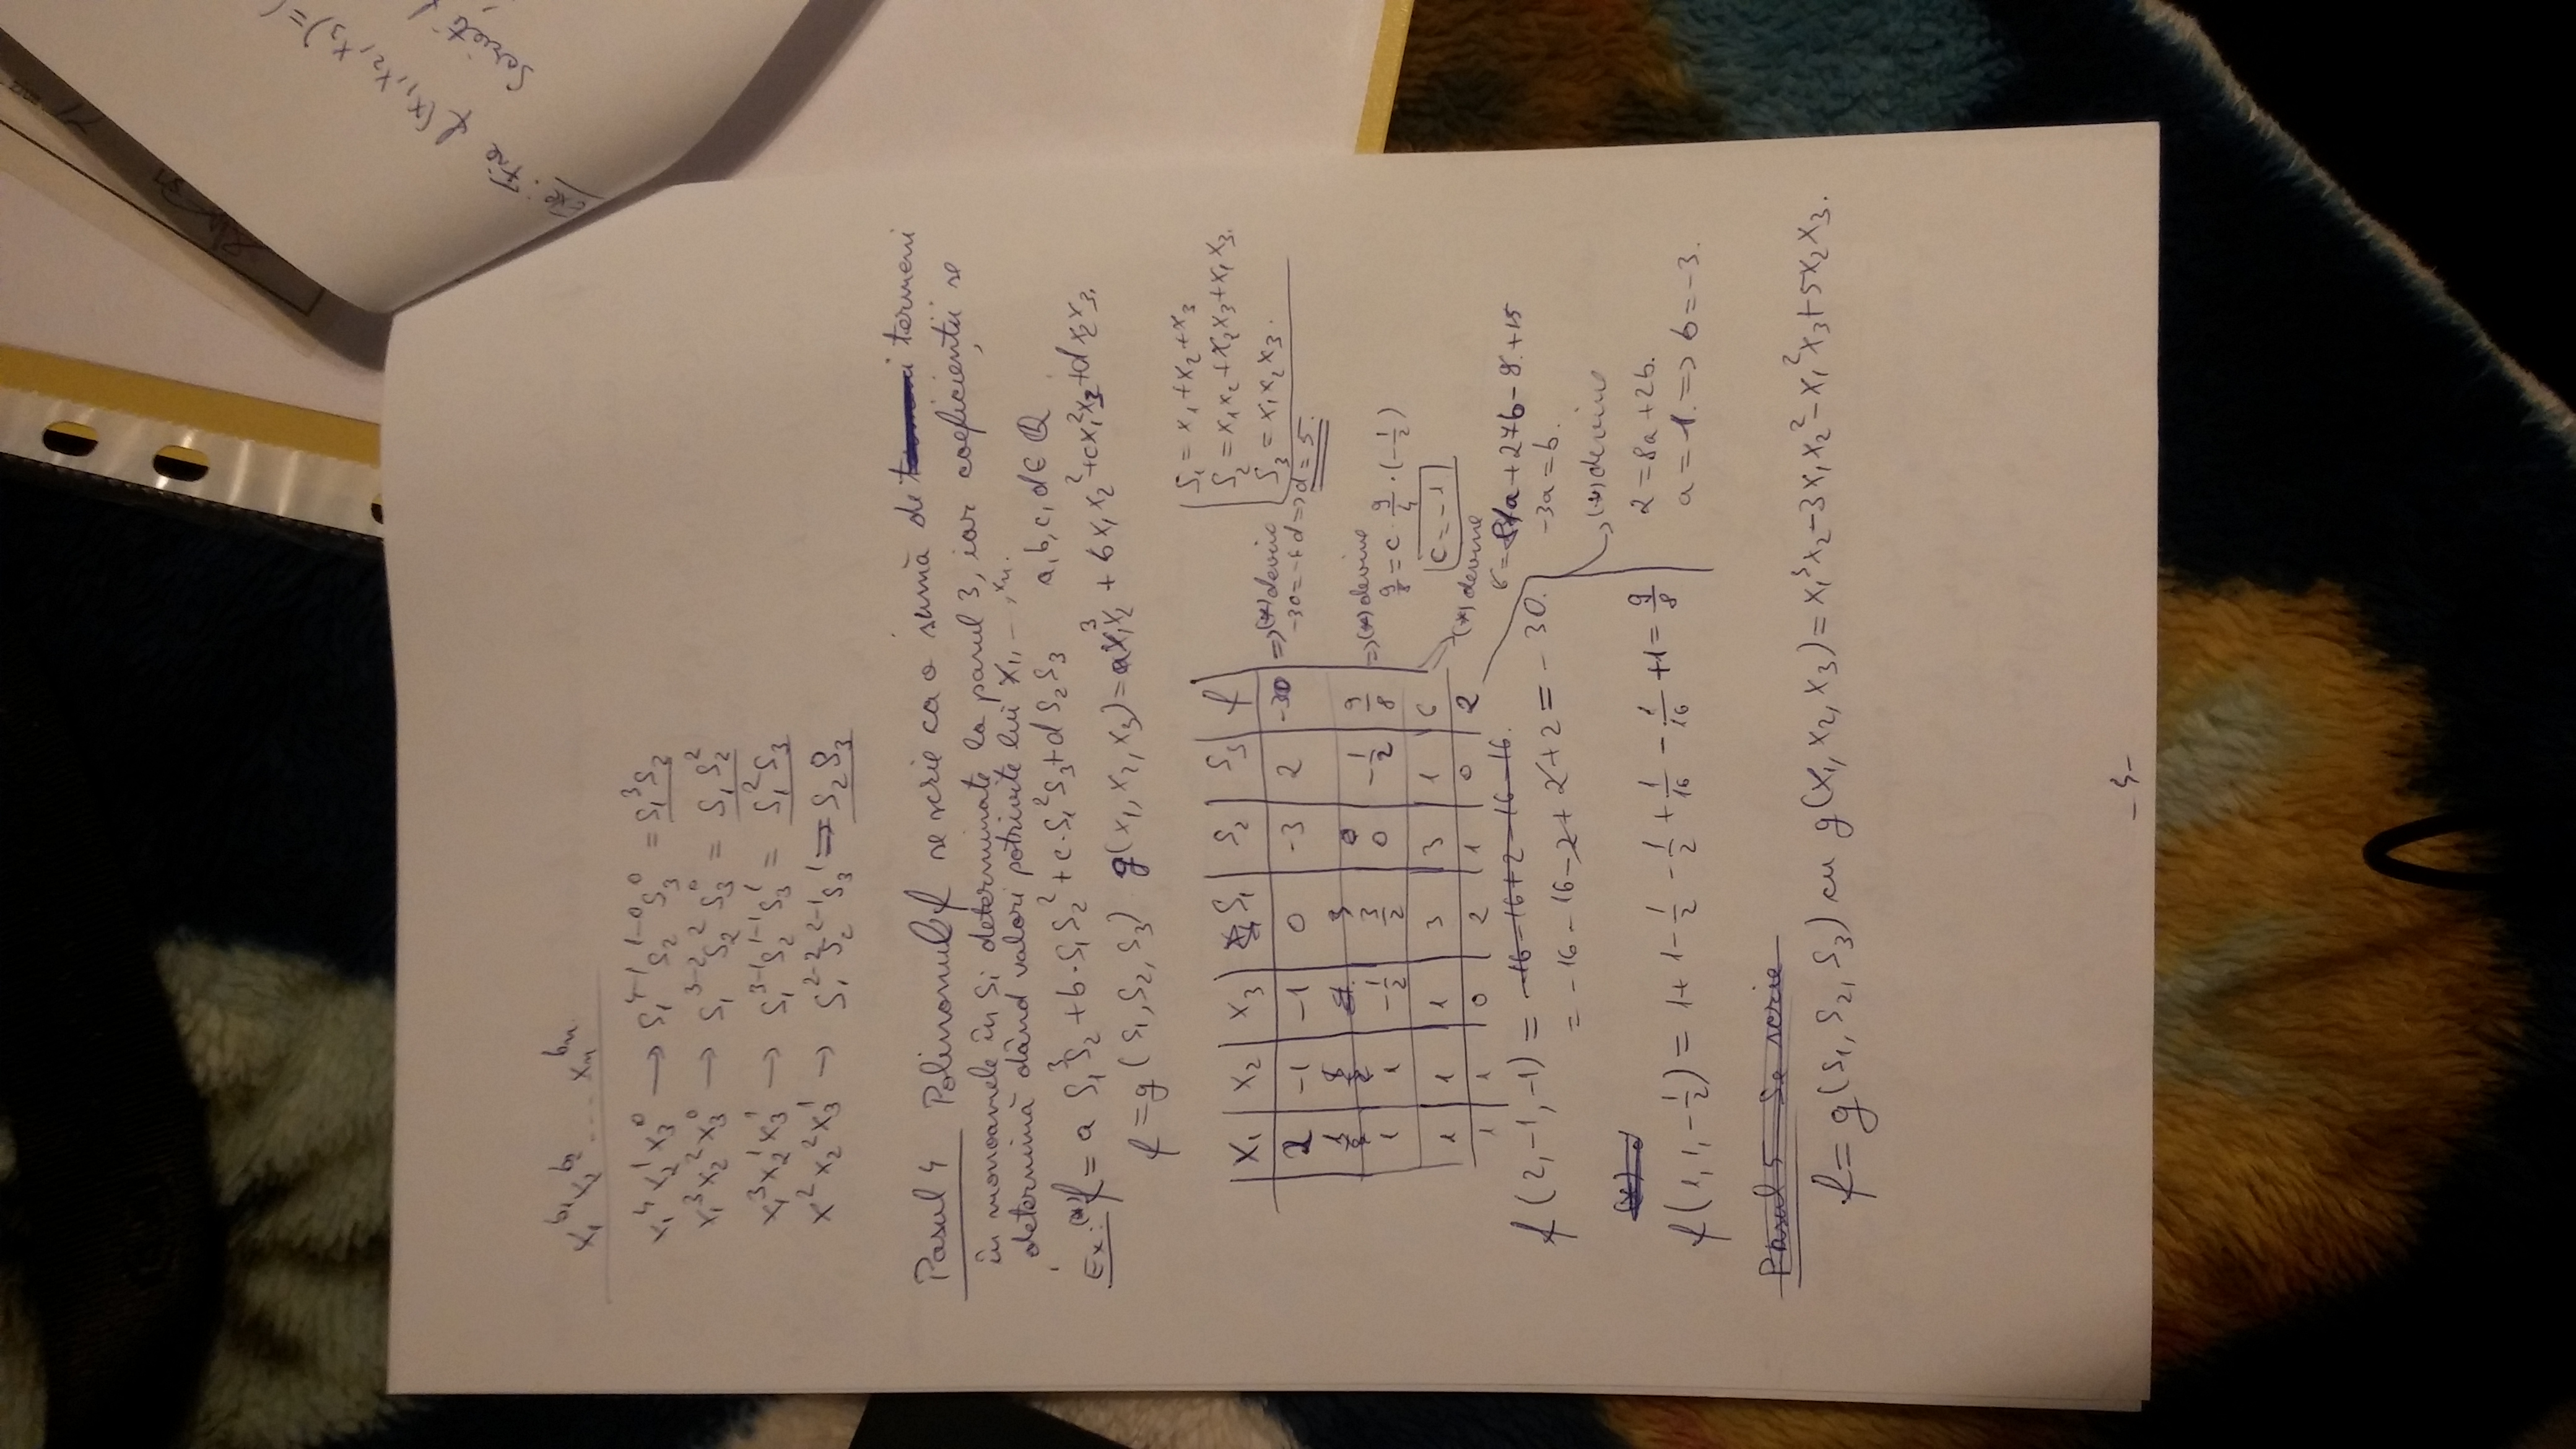 x₁^b₁ x₂^b₂ .... xₙ^bₙ
x₁⁴x₂¹x₃⁰ → S₁⁴⁻¹S₂¹⁻⁰S₃⁰ = S₁³S₂
x₁³x₂²x₃⁰ → S₁³⁻²S₂²S₃⁰ = S₁S₂²
x₁³x₂¹x₃¹ → S₁³⁻¹S₂¹⁻¹S₃¹ = S₁²S₃
x²x₂²x₃¹ → S₁²⁻²S₂²⁻¹S₃¹ = S₂S₃
Pasul 4 Polinomul f se scrie ca o sumă de termeni
în monoamele în Si determinate la pasul 3, iar coeficienții se
determină dând valori potrivite lui x₁, -, xₙ.
Ex: (*) f = a S₁³S₂ + b·S₁S₂² + c·S₁²S₃ + d S₂S₃ a, b, c, d ∈ Q
f = g(S₁, S₂, S₃) g(x₁, x₂, x₃) = ax₁³x₂ + bx₁x₂² + cx₁²x₃ + dx₂x₃.
S₁ = x₁ + x₂ + x₃
S₂ = x₁x₂ + x₂x₃ + x₁x₃.
S₃ = x₁x₂x₃.
x₁ x₂ x₃ S₁ S₂ S₃ f
2 -1 -1 0 -3 2 -30 => (*) devine
-30 = -6d => d = 5.
1 1 -1/2 3/2 0 -1/2 9/8 => (*) devine
9/8 = c · 9/4 · (-1/2)
c = -1
1 1 1 3 3 1 6
(*) devine
1 1 0 2 1 0 2
6 = 81a + 27b - 9 + 15
-3a = b.
f(2, -1, -1) = -16 - 16 + 2 - 16 - 16.
= -16 - 16 - 2 + 2 + 2 = -30.
(*) d
(*) devine
2 = 8a + 2b.
a = 1. => b = -3.
f(1, 1, -1/2) = 1 + 1 - 1/2 - 1/2 + 1/16 - 1/16 + 1 = 9/8
Pasul 5 Se scrie
f = g(S₁, S₂, S₃) cu g(x₁, x₂, x₃) = x₁³x₂ - 3x₁x₂² - x₁²x₃ + 5x₂x₃.
Ex: Fie f(x₁, x₂, x₃) = (
Scrieți